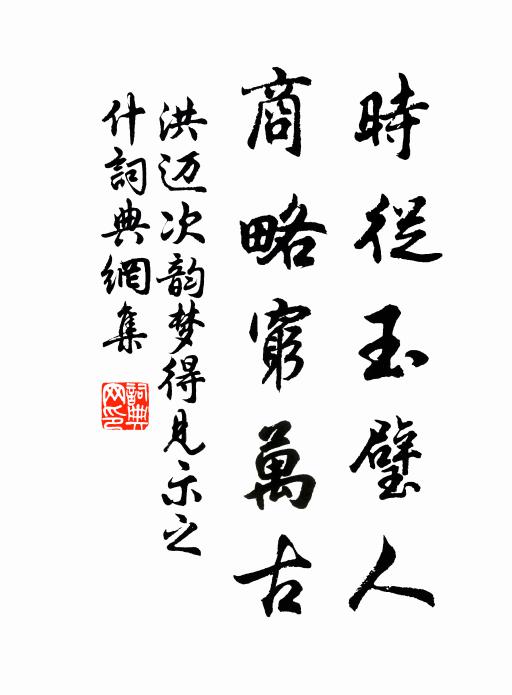 時從玉璧人
商略窮萬古
洪迈次韵梦得見示之
什詞典網集
詞典
网印